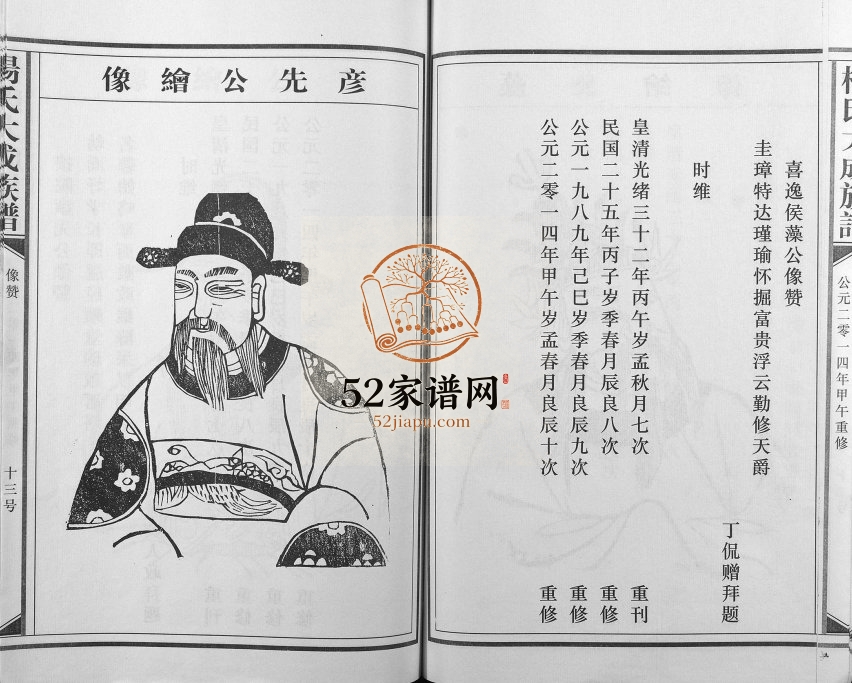 楊氏大成族譜
公元二零一四年甲午重修
喜逸侯藻公像赞
圭璋特达瑾瑜怀掘富贵浮云勤修天爵
丁侃赠拜题
时维
皇清光绪三十二年丙午岁孟秋月七次 重刊
民国二十五年丙子岁季春月辰良八次 重修
公元一九八九年己巳岁季春月良辰九次 重修
公元二零一四年甲午岁孟春月良辰十次 重修
彦先公繪像
楊氏大成族譜
像赞
十三号
52家谱网
52jiapu.com